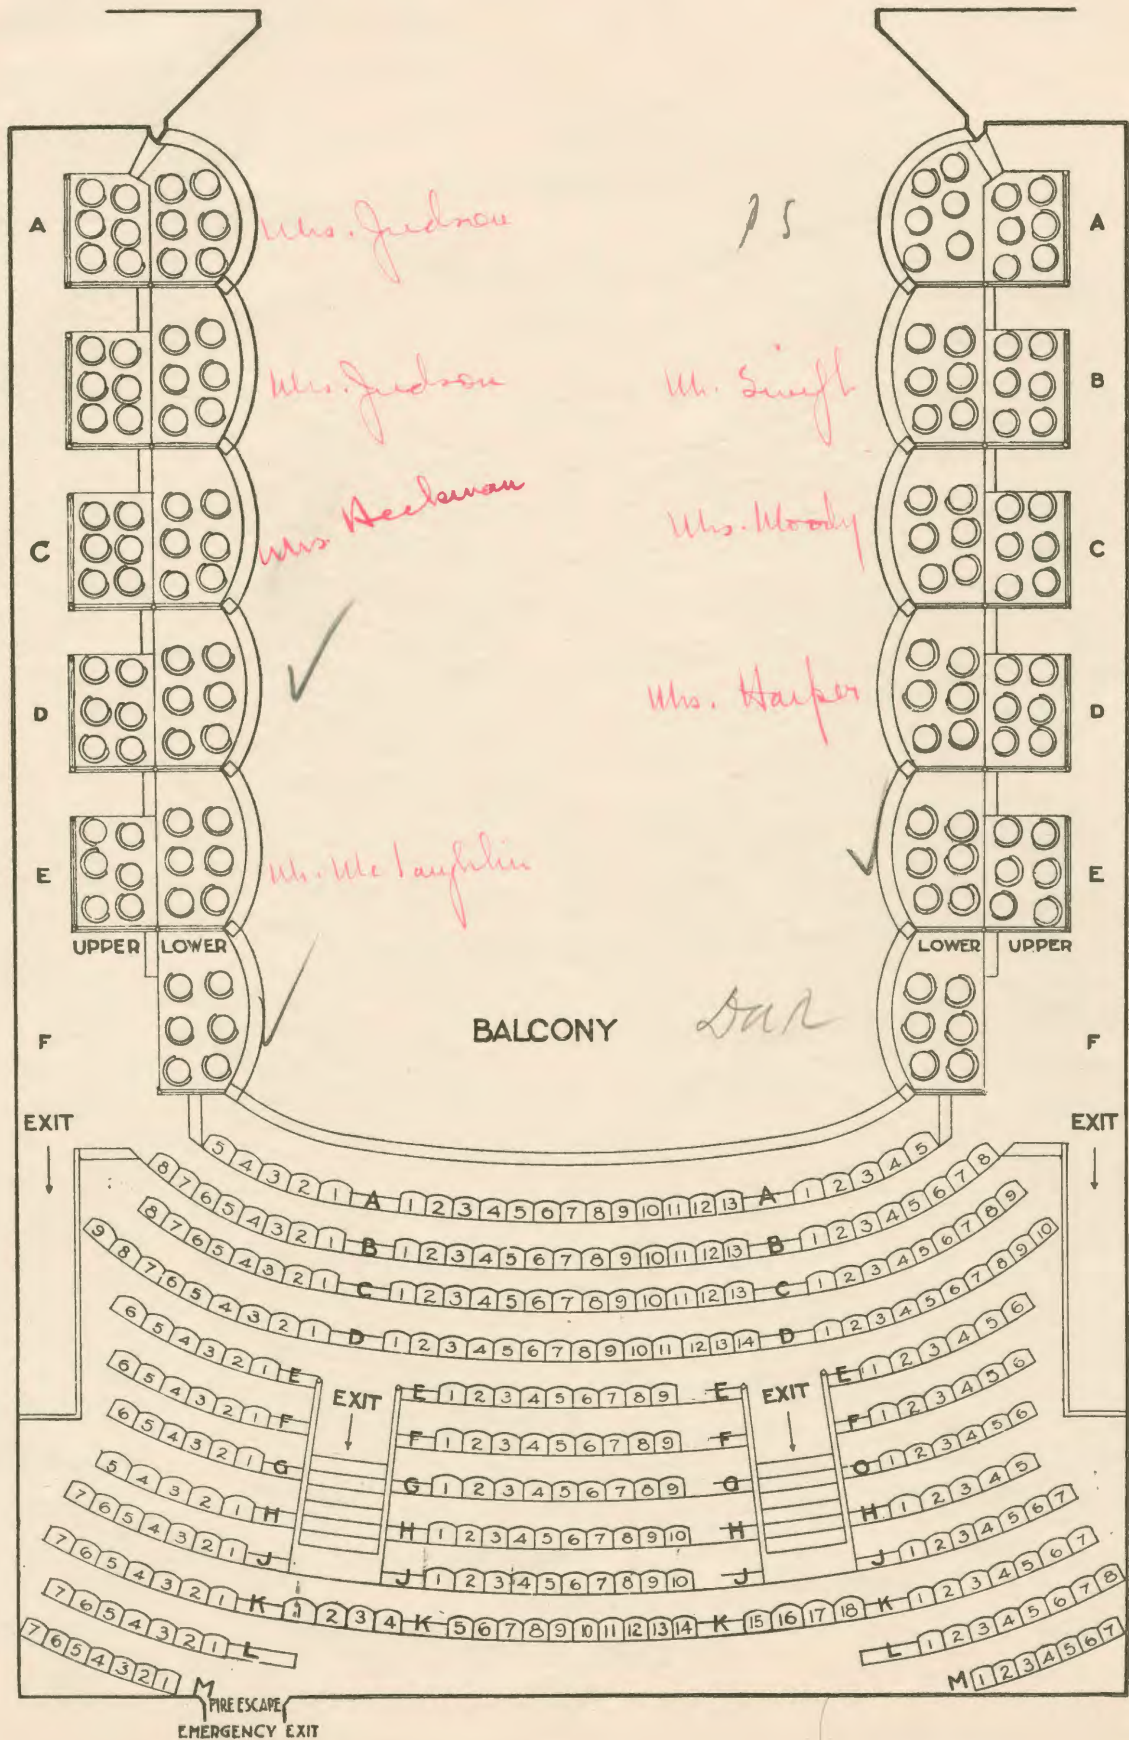 A Mrs. Judson A
B Mrs. Judson Mr. Swift B
C Mrs. Heckman Mrs. Moody C
D ✓ Mrs. Harper D
E Mr. McLaughlin ✓ E
UPPER LOWER LOWER UPPER
F ✓ BALCONY DAR F
EXIT EXIT
5 4 3 2 1 A 1 2 3 4 5 6 7 8 9 10 11 12 13 A 1 2 3 4 5
8 7 6 5 4 3 2 1 B 1 2 3 4 5 6 7 8 9 10 11 12 13 B 1 2 3 4 5 6 7 8
8 7 6 5 4 3 2 1 C 1 2 3 4 5 6 7 8 9 10 11 12 13 C 1 2 3 4 5 6 7 8 9
9 8 7 6 5 4 3 2 1 D 1 2 3 4 5 6 7 8 9 10 11 12 13 14 D 1 2 3 4 5 6 7 8 9 10
6 5 4 3 2 1 E E 1 2 3 4 5 6 7 8 9 E E 1 2 3 4 5 6
EXIT EXIT
6 5 4 3 2 1 F F 1 2 3 4 5 6 7 8 9 F F 1 2 3 4 5 6
6 5 4 3 2 1 G G 1 2 3 4 5 6 7 8 9 G G 1 2 3 4 5 6
5 4 3 2 1 H H 1 2 3 4 5 6 7 8 9 10 H H 1 2 3 4 5
7 6 5 4 3 2 1 J J 1 2 3 4 5 6 7 8 9 10 J J 1 2 3 4 5 6 7
7 6 5 4 3 2 1 K 1 2 3 4 K 5 6 7 8 9 10 11 12 13 14 K 15 16 17 18 K 1 2 3 4 5 6 7
7 6 5 4 3 2 1 L L 1 2 3 4 5 6 7 8
7 6 5 4 3 2 1 M M 1 2 3 4 5 6 7
FIRE ESCAPE
EMERGENCY EXIT